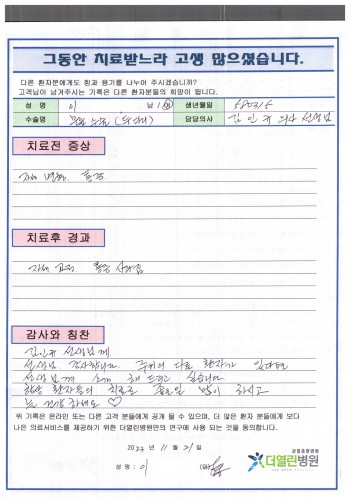 그동안 치료받느라 고생 많으셨습니다.
다른 환자분에게도 힘과 용기를 나누어 주시겠습니까?
고객님이 남겨주시는 기록은 다른 환자분들의 희망이 됩니다.
성 명 이 남 / 여 생년월일
수술명 담당의사 김인규 의사 선생님
치료전 증상
통증
치료후 경과
자세 교정 통증 사라짐
감사와 칭찬
김인규 선생님께
선생님 감사합니다. 주위의 다른 환자가 있다면
선생님께 소개 해 드리고 싶습니다
항상 환자들의 치료로 좋은일 많이 하시고
늘 건강 하세요 ♡
위 기록은 온라인 또는 다른 고객 분들에게 공개 될 수 있으며, 더 많은 환자 분들에게 보다
나은 의료서비스를 제공하기 위한 더열린병원만의 연구에 사용 되는 것을 동의합니다.
2023 년 11 월 21 일
성 명 : 이 (인)
관절중점병원
더열린병원